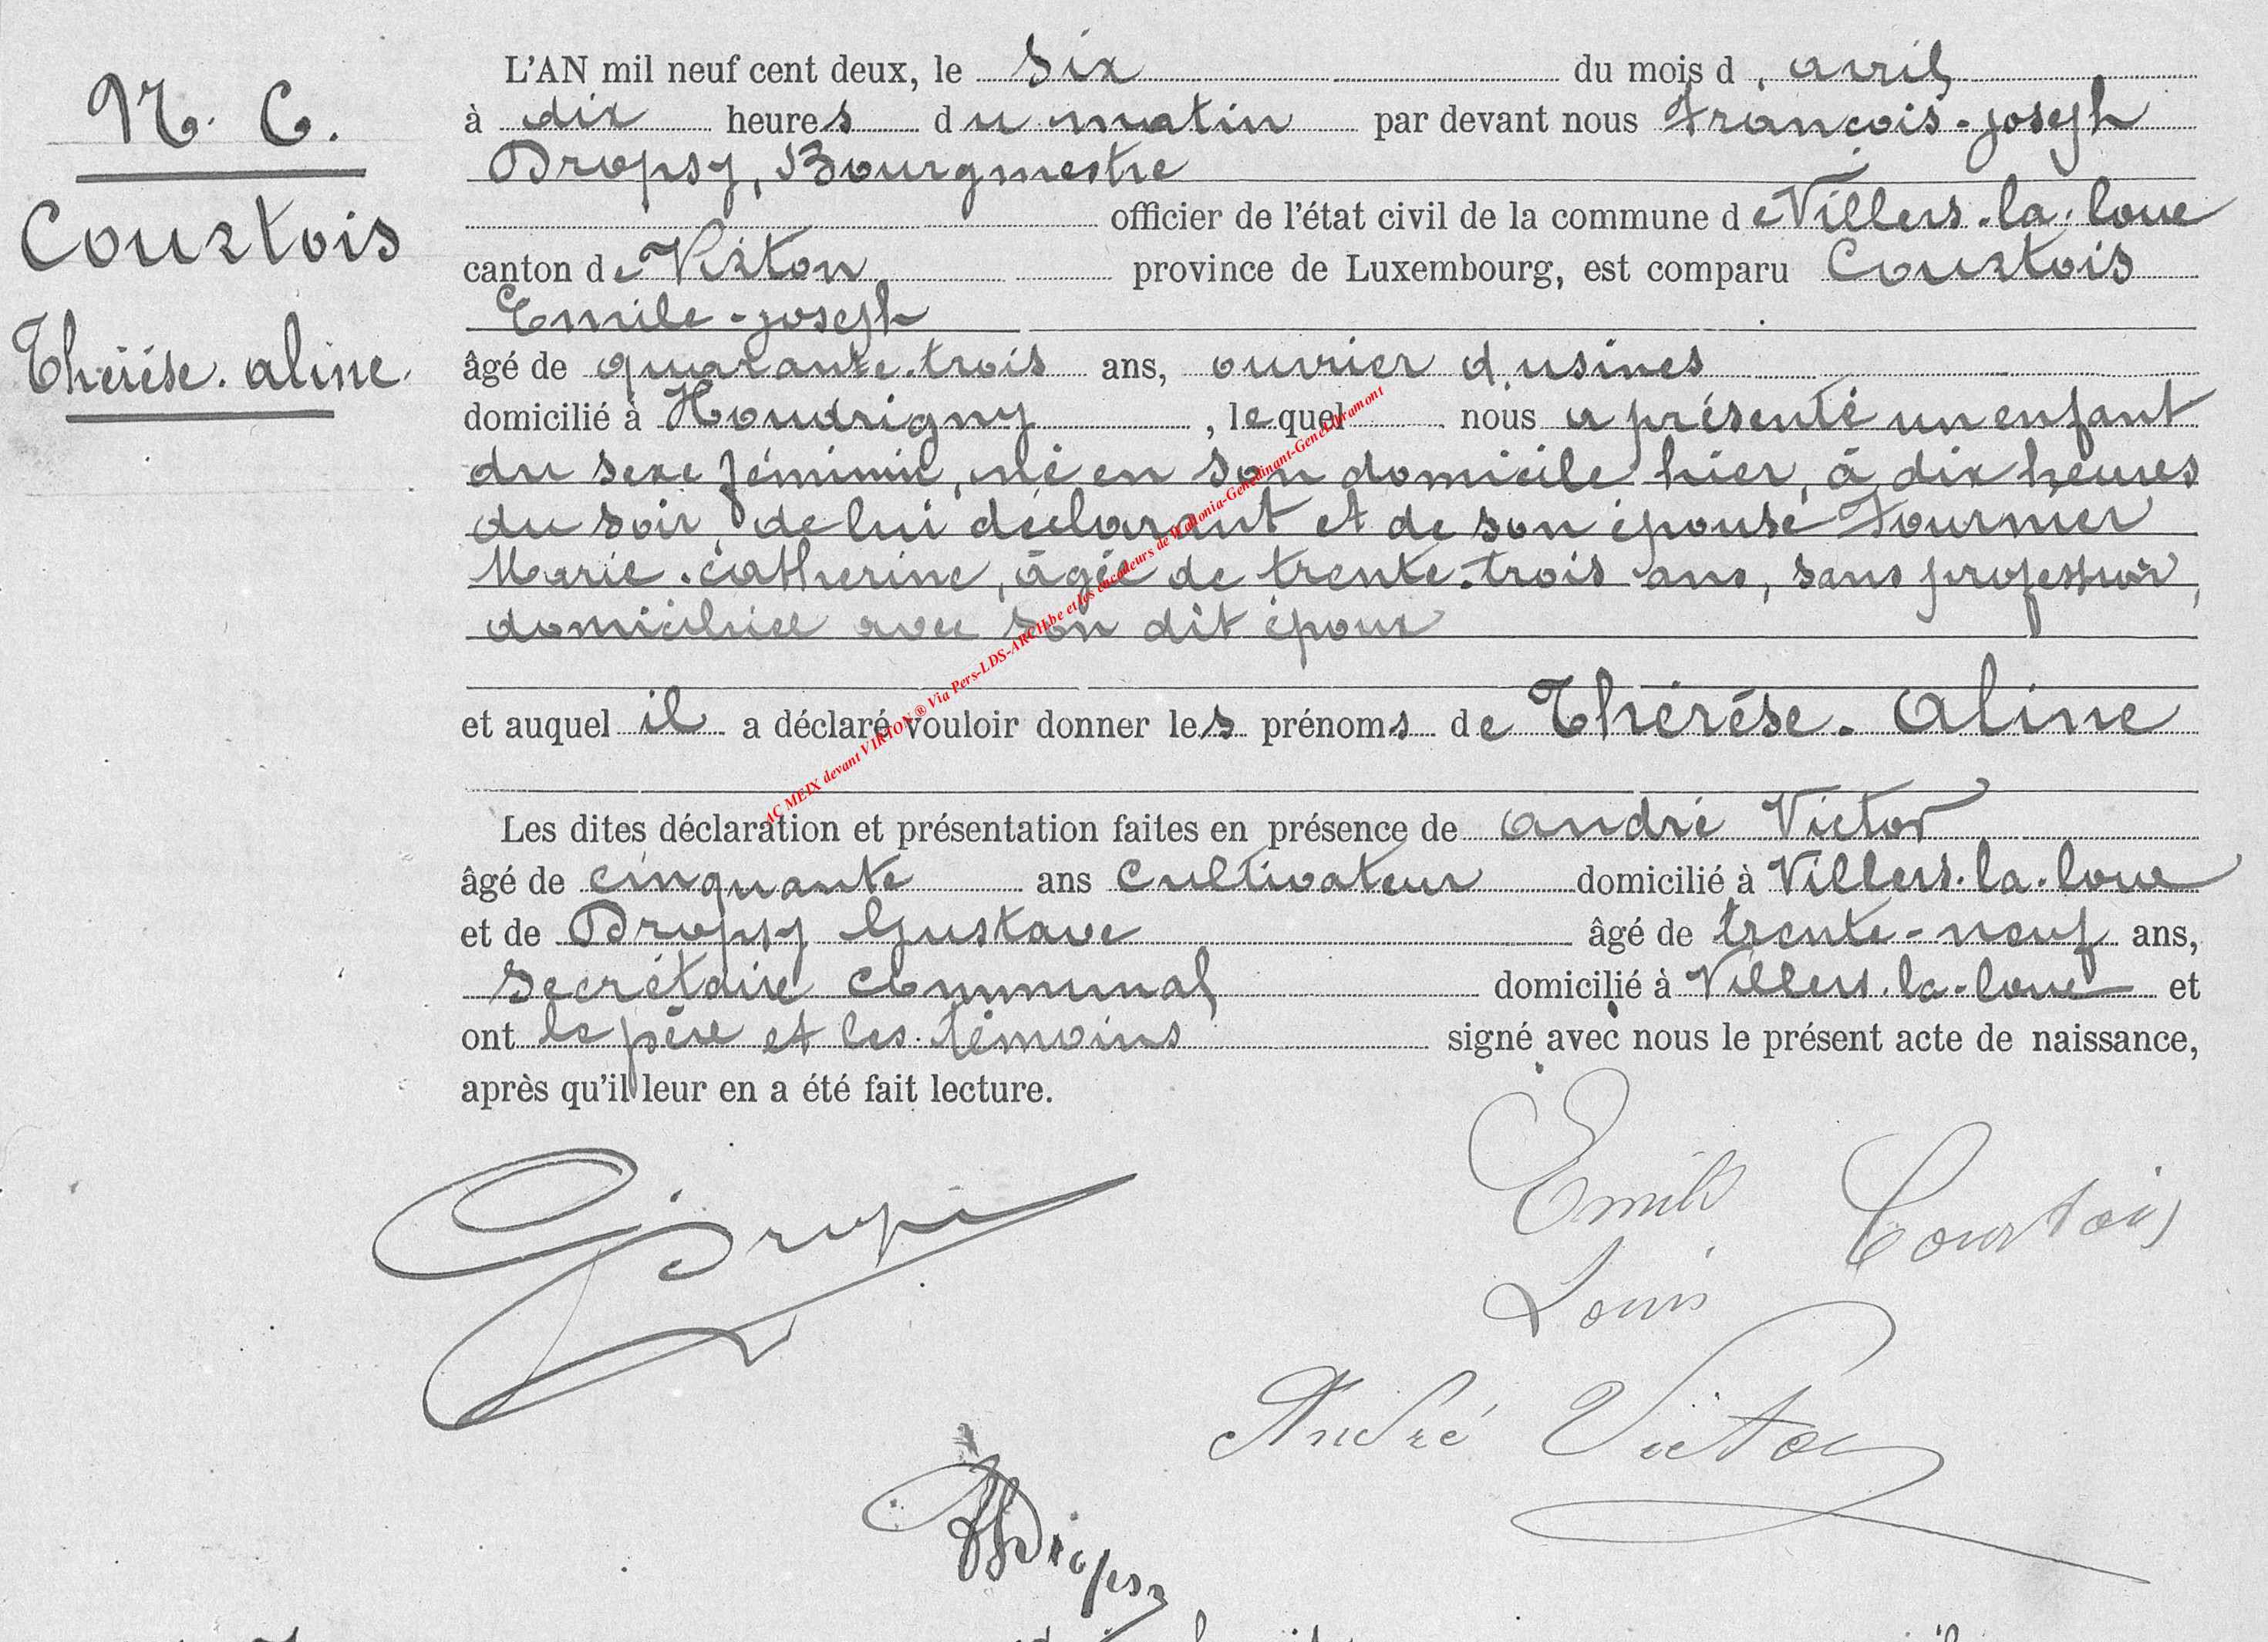 N. C.
Courtois
Thérèse. aline.
L'AN mil neuf cent deux, le six du mois d'avril
à dix heures du matin par devant nous François-joseph
Dropsy, Bourgmestre
officier de l'état civil de la commune de Villers-la-loue
canton de Virton province de Luxembourg, est comparu Courtois
Emile-joseph
âgé de quarante-trois ans, ouvrier d'usines
domicilié à Houdrigny, lequel nous a présenté un enfant
du sexe féminin, né en son domicile hier, à dix heures
du soir, de lui déclarant et de son épouse Fournier
Marie-catherine, âgée de trente-trois ans, sans profession,
domiciliée avec son dit époux
et auquel il a déclaré vouloir donner les prénoms de Thérèse-Aline
AC MEIX devant VIRTON ® Via Pers-LDS-ARCH.be et les encodeurs de Wallonia-Genedinant-Genelibramont
Les dites déclaration et présentation faites en présence de André Victor
âgé de cinquante ans cultivateur domicilié à Villers-la-loue
et de Dropsy Gustave âgé de trente-neuf ans,
secrétaire communal domicilié à Villers-la-loue et
ont le père et les témoins signé avec nous le présent acte de naissance,
après qu'il leur en a été fait lecture.
Emile Courtois
Louis
André Victor
Dropsy